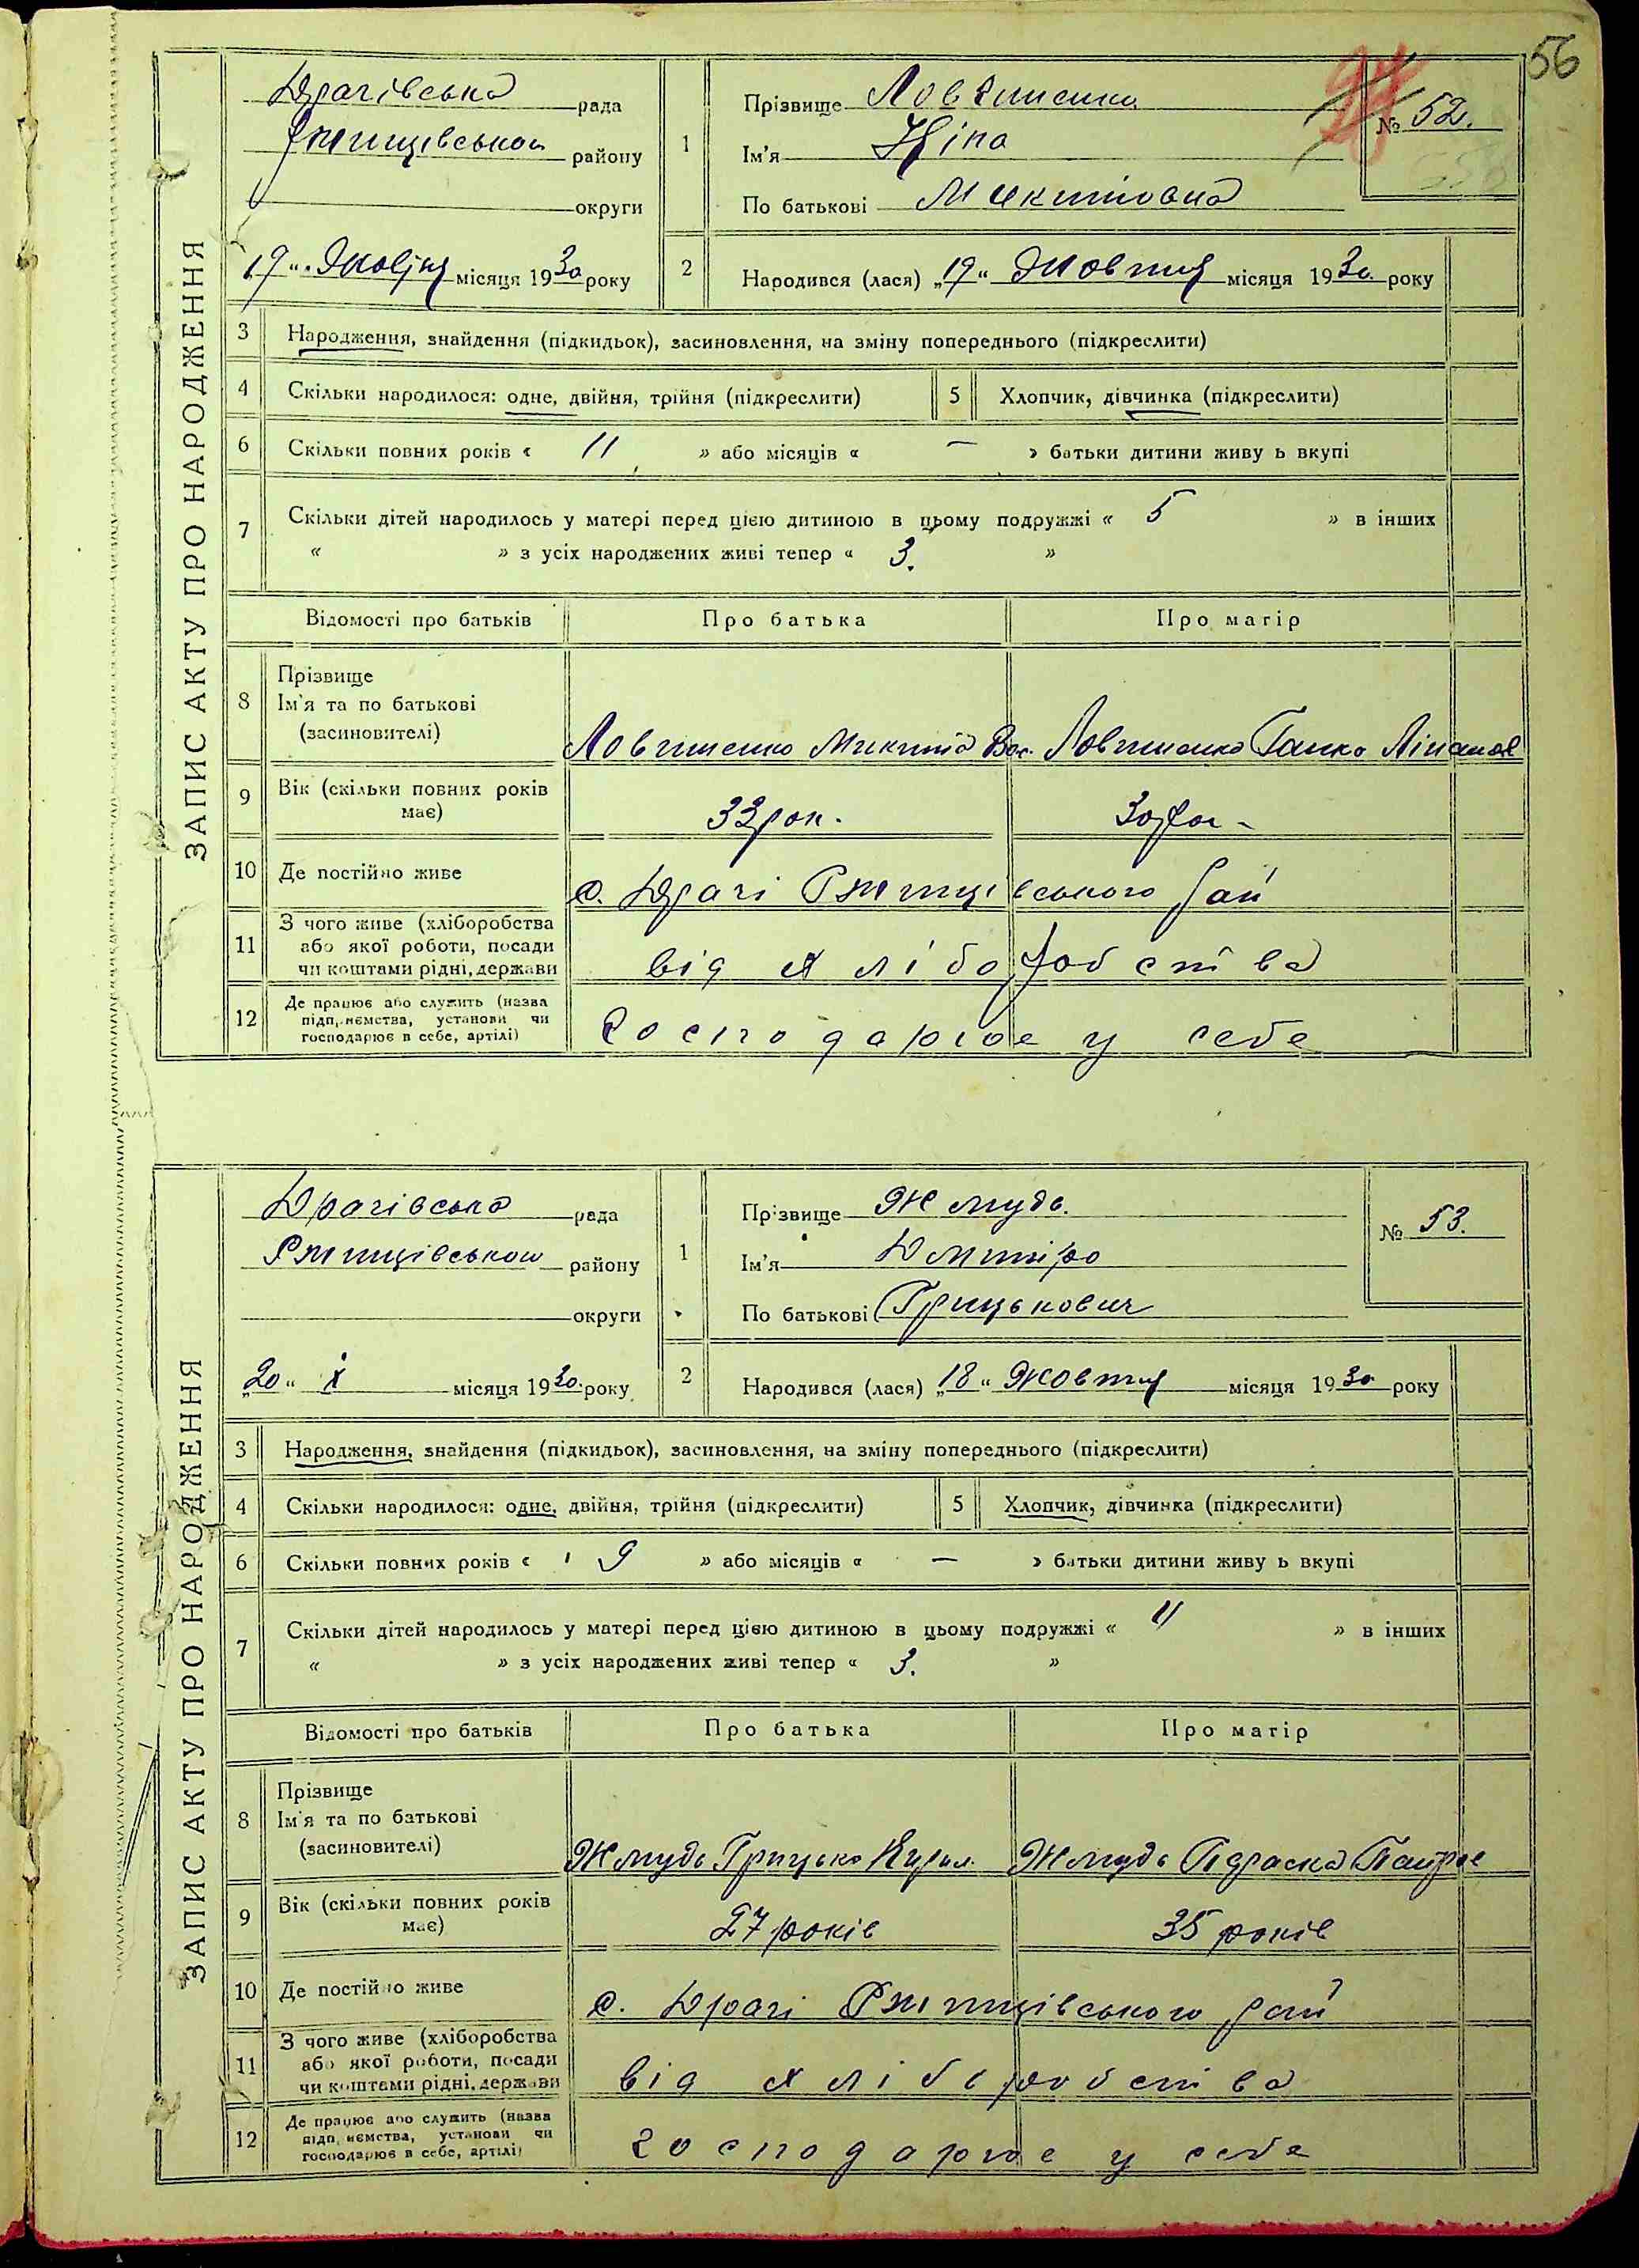 56
ЗАПИС АКТУ ПРО НАРОДЖЕННЯ
Драчівська рада
Ржищівського району
округи
19 " Жовтня місяця 1930 року
1
Прізвище Ловчиненко
Ім'я Ніна
По батькові Микитовна
№ 52.
2
Народився (лася) „19" Жовтня місяця 1930 року
3 Народження, знайдення (підкидьок), засиновлення, на зміну попереднього (підкреслити)
4 Скільки народилося: одне, двійня, трійня (підкреслити) 5 Хлопчик, дівчинка (підкреслити)
6 Скільки повних років « 11 » або місяців « — » батьки дитини живу ь вкупі
7 Скільки дітей народилось у матері перед цією дитиною в цьому подружжі « 5 » в інших
« » з усіх народжених живі тепер « 3. »
Відомості про батьків Про батька Про матір
8 Прізвище
Ім'я та по батькові
(засиновителі)
Микита Вас. Ганка
9 Вік (скільки повних років
має)
33 рок. 30 рок
10 Де постійно живе с. Драчі Ржищівського рай
11 З чого живе (хліборобства
або якої роботи, посади
чи коштами рідні, держави
від хліборобства
12 Де працює або служить (назва
підп, немства, установи чи
господарює в себе, артілі)
господарює у себе
ЗАПИС АКТУ ПРО НАРОДЖЕННЯ
Драчівська рада
Ржищівського району
округи
„20" X місяця 1930. року
1
Прізвище Жмудь.
Ім'я Дмитро
По батькові Грицькович
№ 53.
2
Народився (лася) „18" Жовтня місяця 1930 року
3 Народження, знайдення (підкидьок), засиновлення, на зміну попереднього (підкреслити)
4 Скільки народилося: одне, двійня, трійня (підкреслити) 5 Хлопчик, дівчинка (підкреслити)
6 Скільки повних років « 9 » або місяців « — » батьки дитини живу ь вкупі
7 Скільки дітей народилось у матері перед цією дитиною в цьому подружжі « 4 » в інших
« » з усіх народжених живі тепер « 3. »
Відомості про батьків Про батька Про матір
8 Прізвище
Ім'я та по батькові
(засиновителі)
Жмудь Грицько Кирил. Жмудь
9 Вік (скільки повних років
має)
37 років 35 років
10 Де постійно живе с. Драчі Ржищівського рай
11 З чого живе (хліборобства
або якої роботи, посади
чи коштами рідні, держави
від хліборобства
12 Де працює або служить (назва
підп, немства, установи чи
господарює в себе, артілі)
господарює у себе